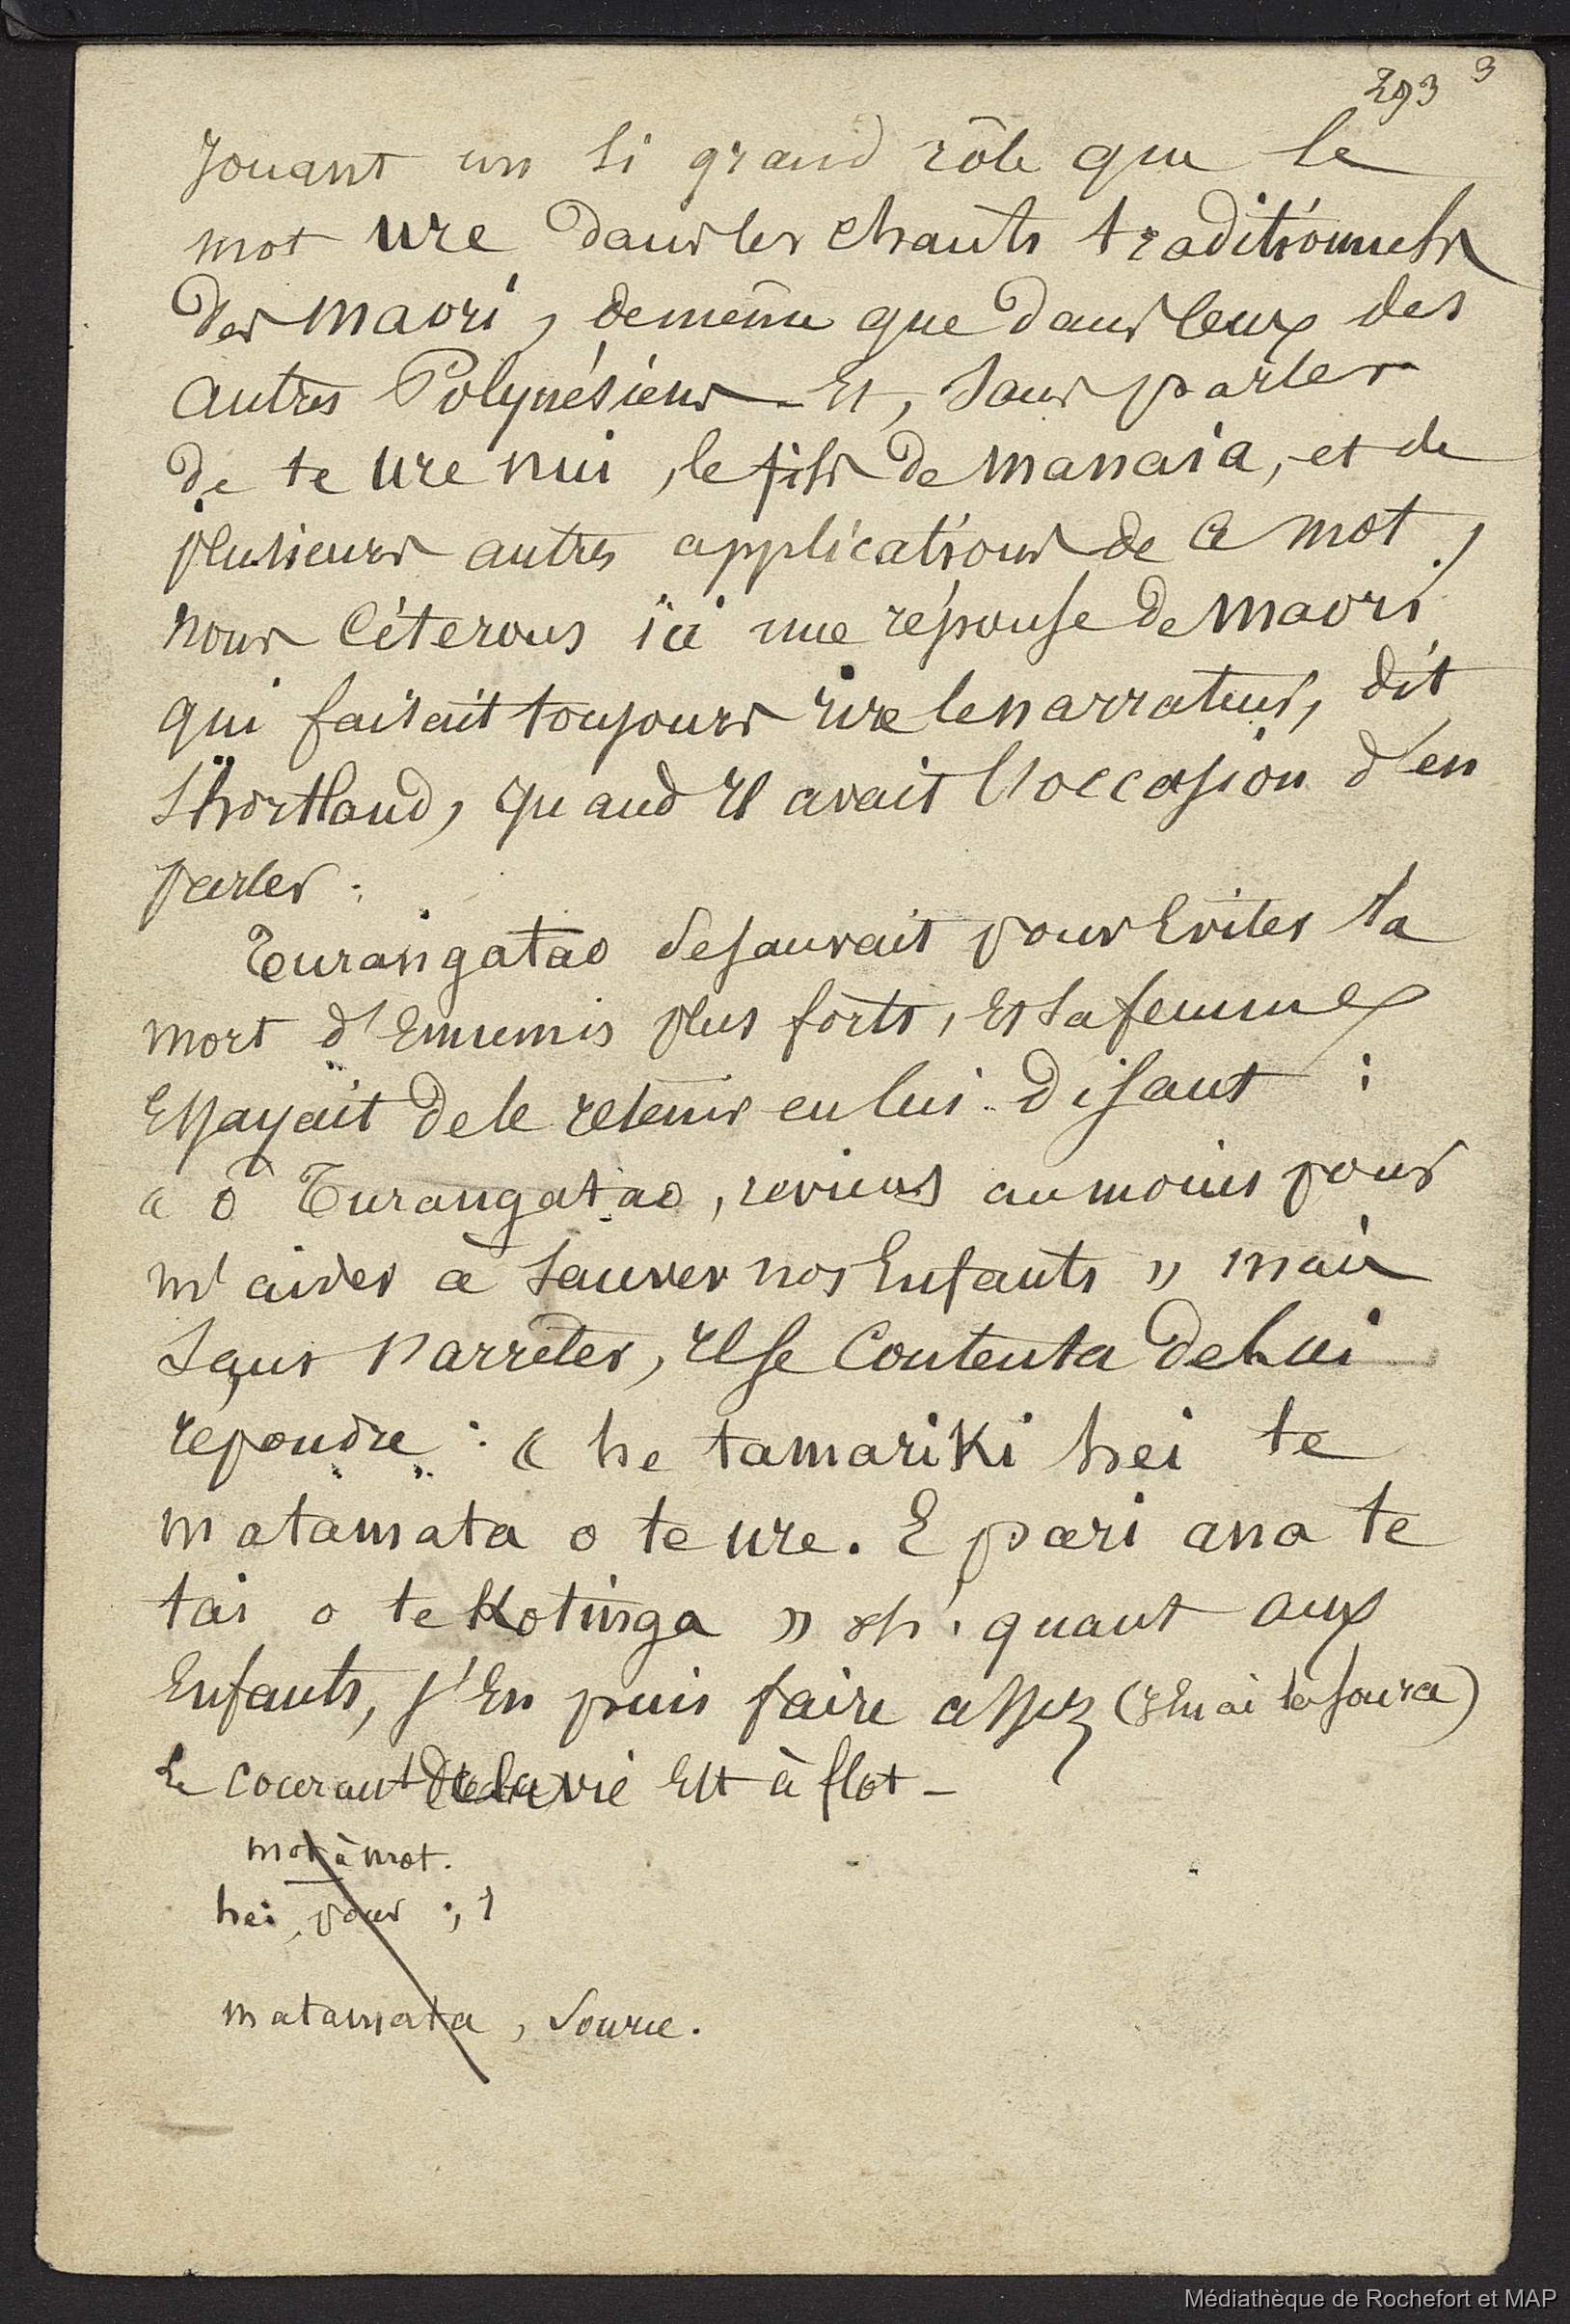 293 3
jouant un si grand rôle que le
mot ure dans les chants traditionnels
des maori, de même que dans ceux des
autres Polynésiens - Et, sans parler
de te ure nui, le fils de manaia, et de
plusieurs autres applications de ce mot,
nous citerons ici une réponse de maori
qui faisait toujours rire le narrateur, dit
Shortland, quand il avait l'occasion d'en
parler :
Turangatao se sauvait pour éviter la
mort d'ennemis plus forts, et sa femme
essayait de le retenir en lui disant :
« ô Turangatao, reviens au moins pour
m'aider à sauver nos enfants » mais
sans s'arrêter, il se contenta de lui
répondre : « he tamariki hei te
matamata o te ure. E pari ana te
tai o te Kotinga » quant aux
enfants, j'en puis faire assez (j'en ai la source)
le courant de la vie est à flot -
mot à mot.
hei, pour ;
matamata, source.
Médiathèque de Rochefort et MAP